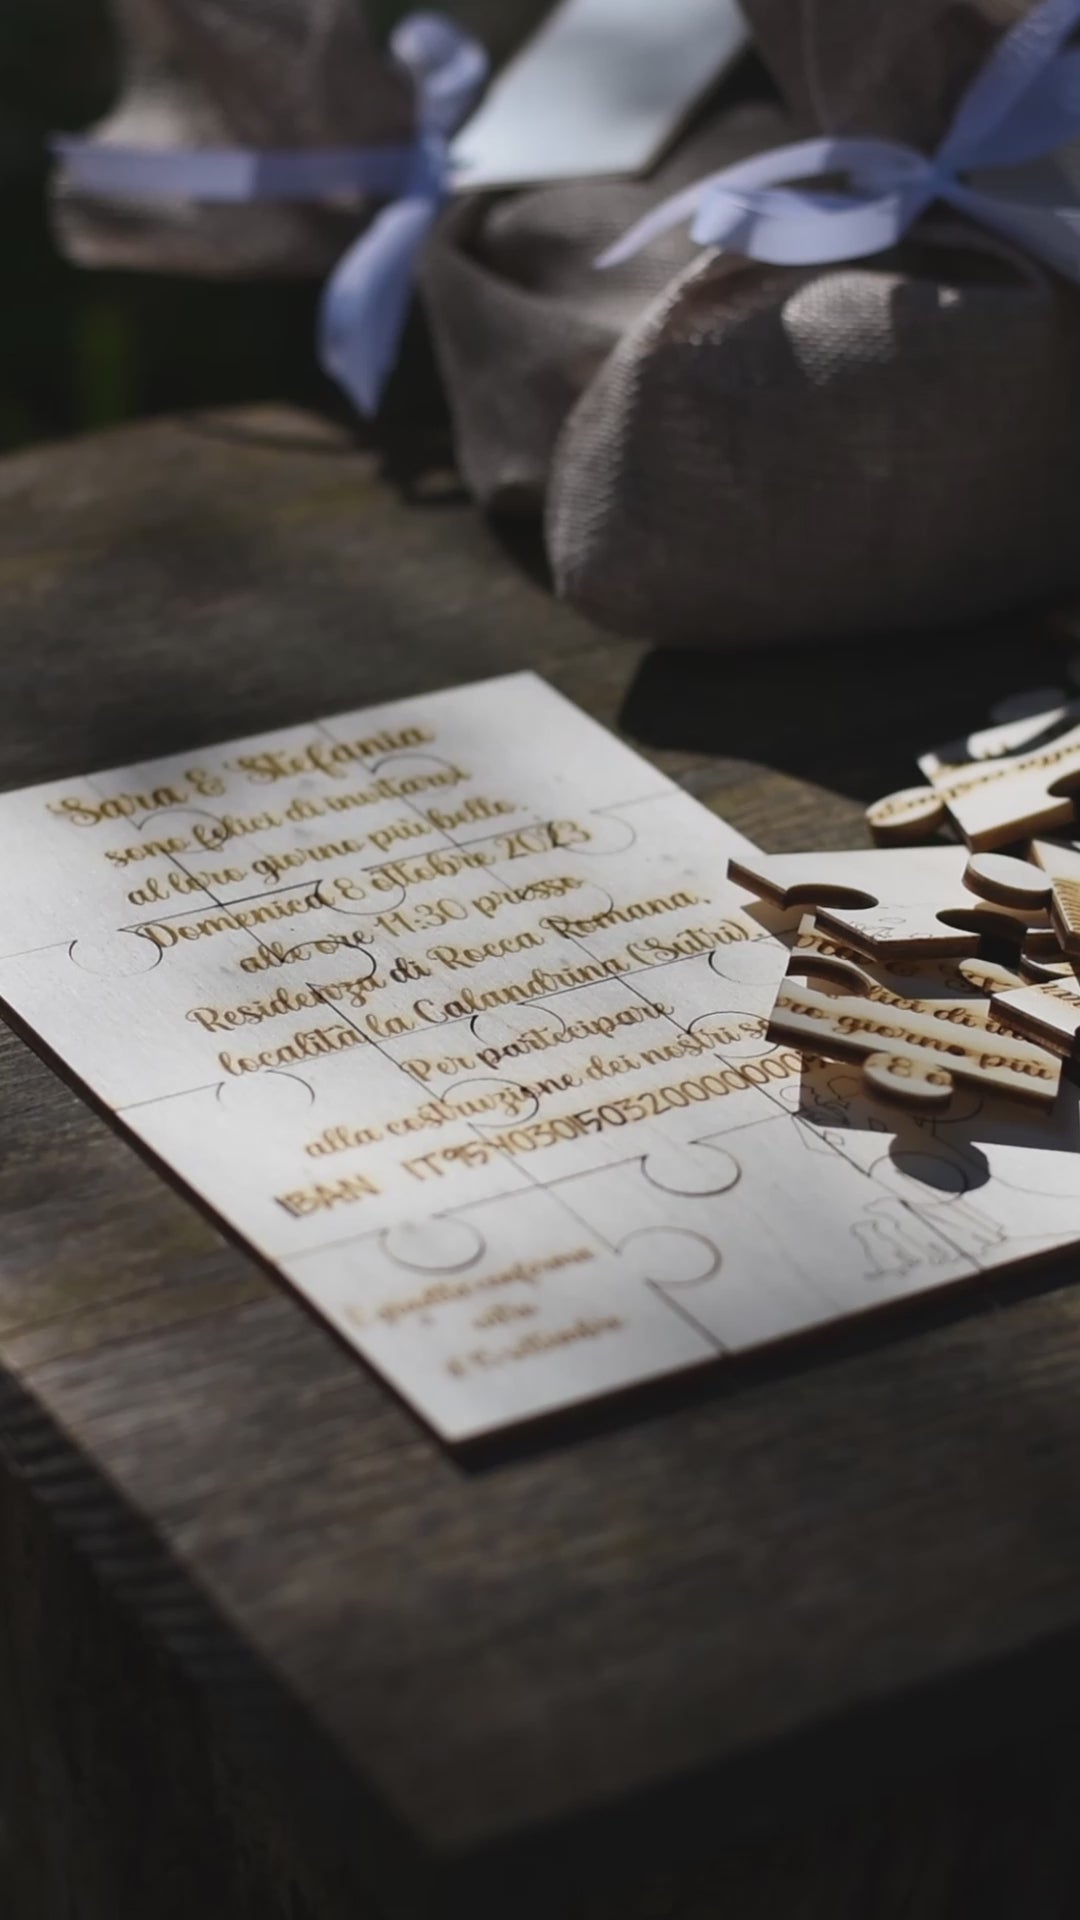 Sara & Stefania
sono felici di invitarvi
al loro giorno più bello.
Domenica 8 ottobre 2023
alle ore 11:30 presso
Residenza di Rocca Romana,
località la Calandrina (Sutri).
Per partecipare
alla costruzione dei nostri so
IBAN IT95Y0301503200000000
È gradita conferma
entro
il 15 settembre
lici di in
ro giorno più
8 o